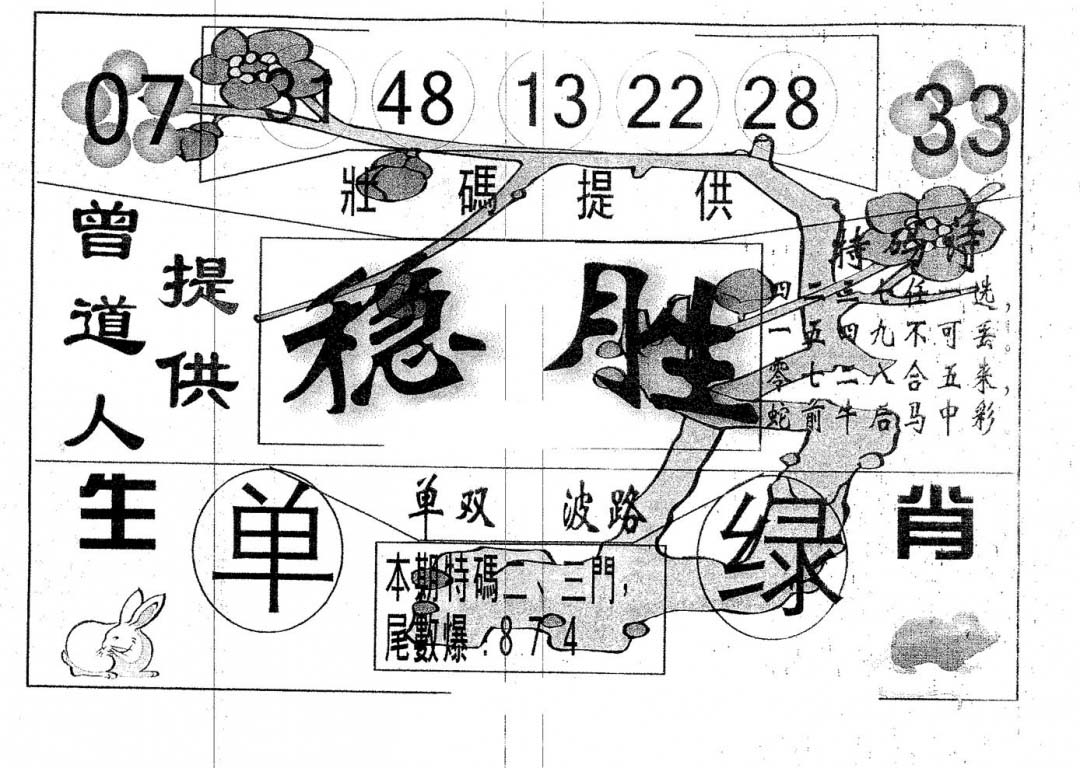 07 31 48 13 22 28 33
壯碼提供
曾道人
提供
稳胜
特码诗
四二三七任一选，
一五四九不可丢。
零七二八合五来，
蛇前牛后马中彩
生肖
单双 波路
单
绿
本期特碼二、三門，
尾數爆：874